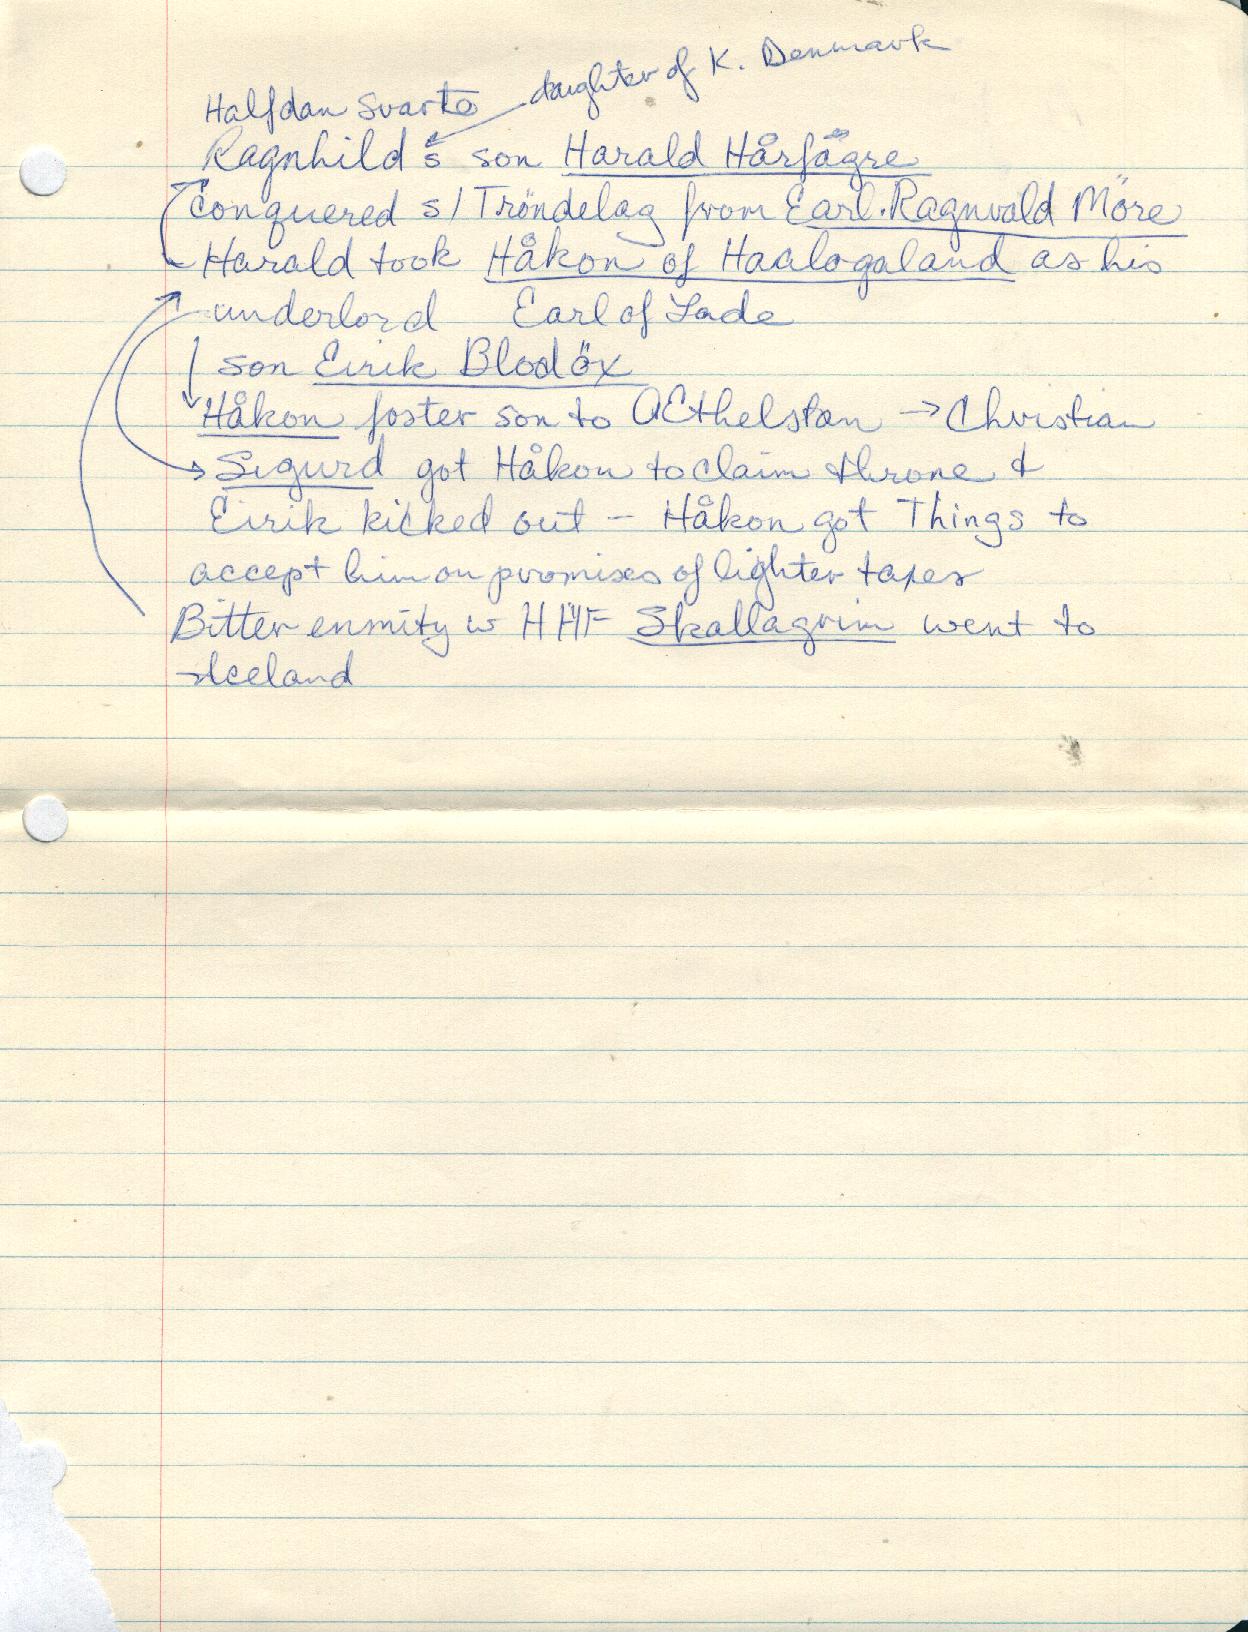 daughter of K. Denmark
Halfdan Svarte
Ragnhild's son Harald Hårfågre
conquered s/Tröndelag from Earl Ragnvald Möre
Harald took Håkon of Haalogaland as his
underlord Earl of Lade
son Eirik Blodöx
Håkon foster son to AEthelstan → Christian
Sigurd got Håkon to claim throne &
Eirik kicked out — Håkon got Things to
accept him on promises of lighter taxes
Bitter enmity w HHF Skallagrim went to
Iceland